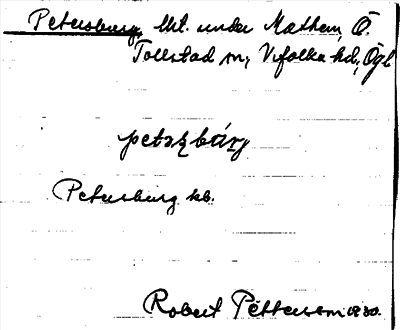 Petersburg, lht. under Mathem, Ö.
Tollstad sn, Vifolka hd, Ögl
petʂbúrj
Petersburg kb.
Robert Pettersson 1930.